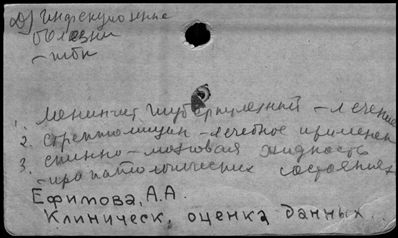 Д) Инфекционные
болезни
– тбк
1. Менингит туберкулезной – лечение
2. стрептомицин – лечебное применен
3. спинно – мозговая жидкость
– при патологических состояниях
Ефимова, А.А.
Клиническ. оценка данных..